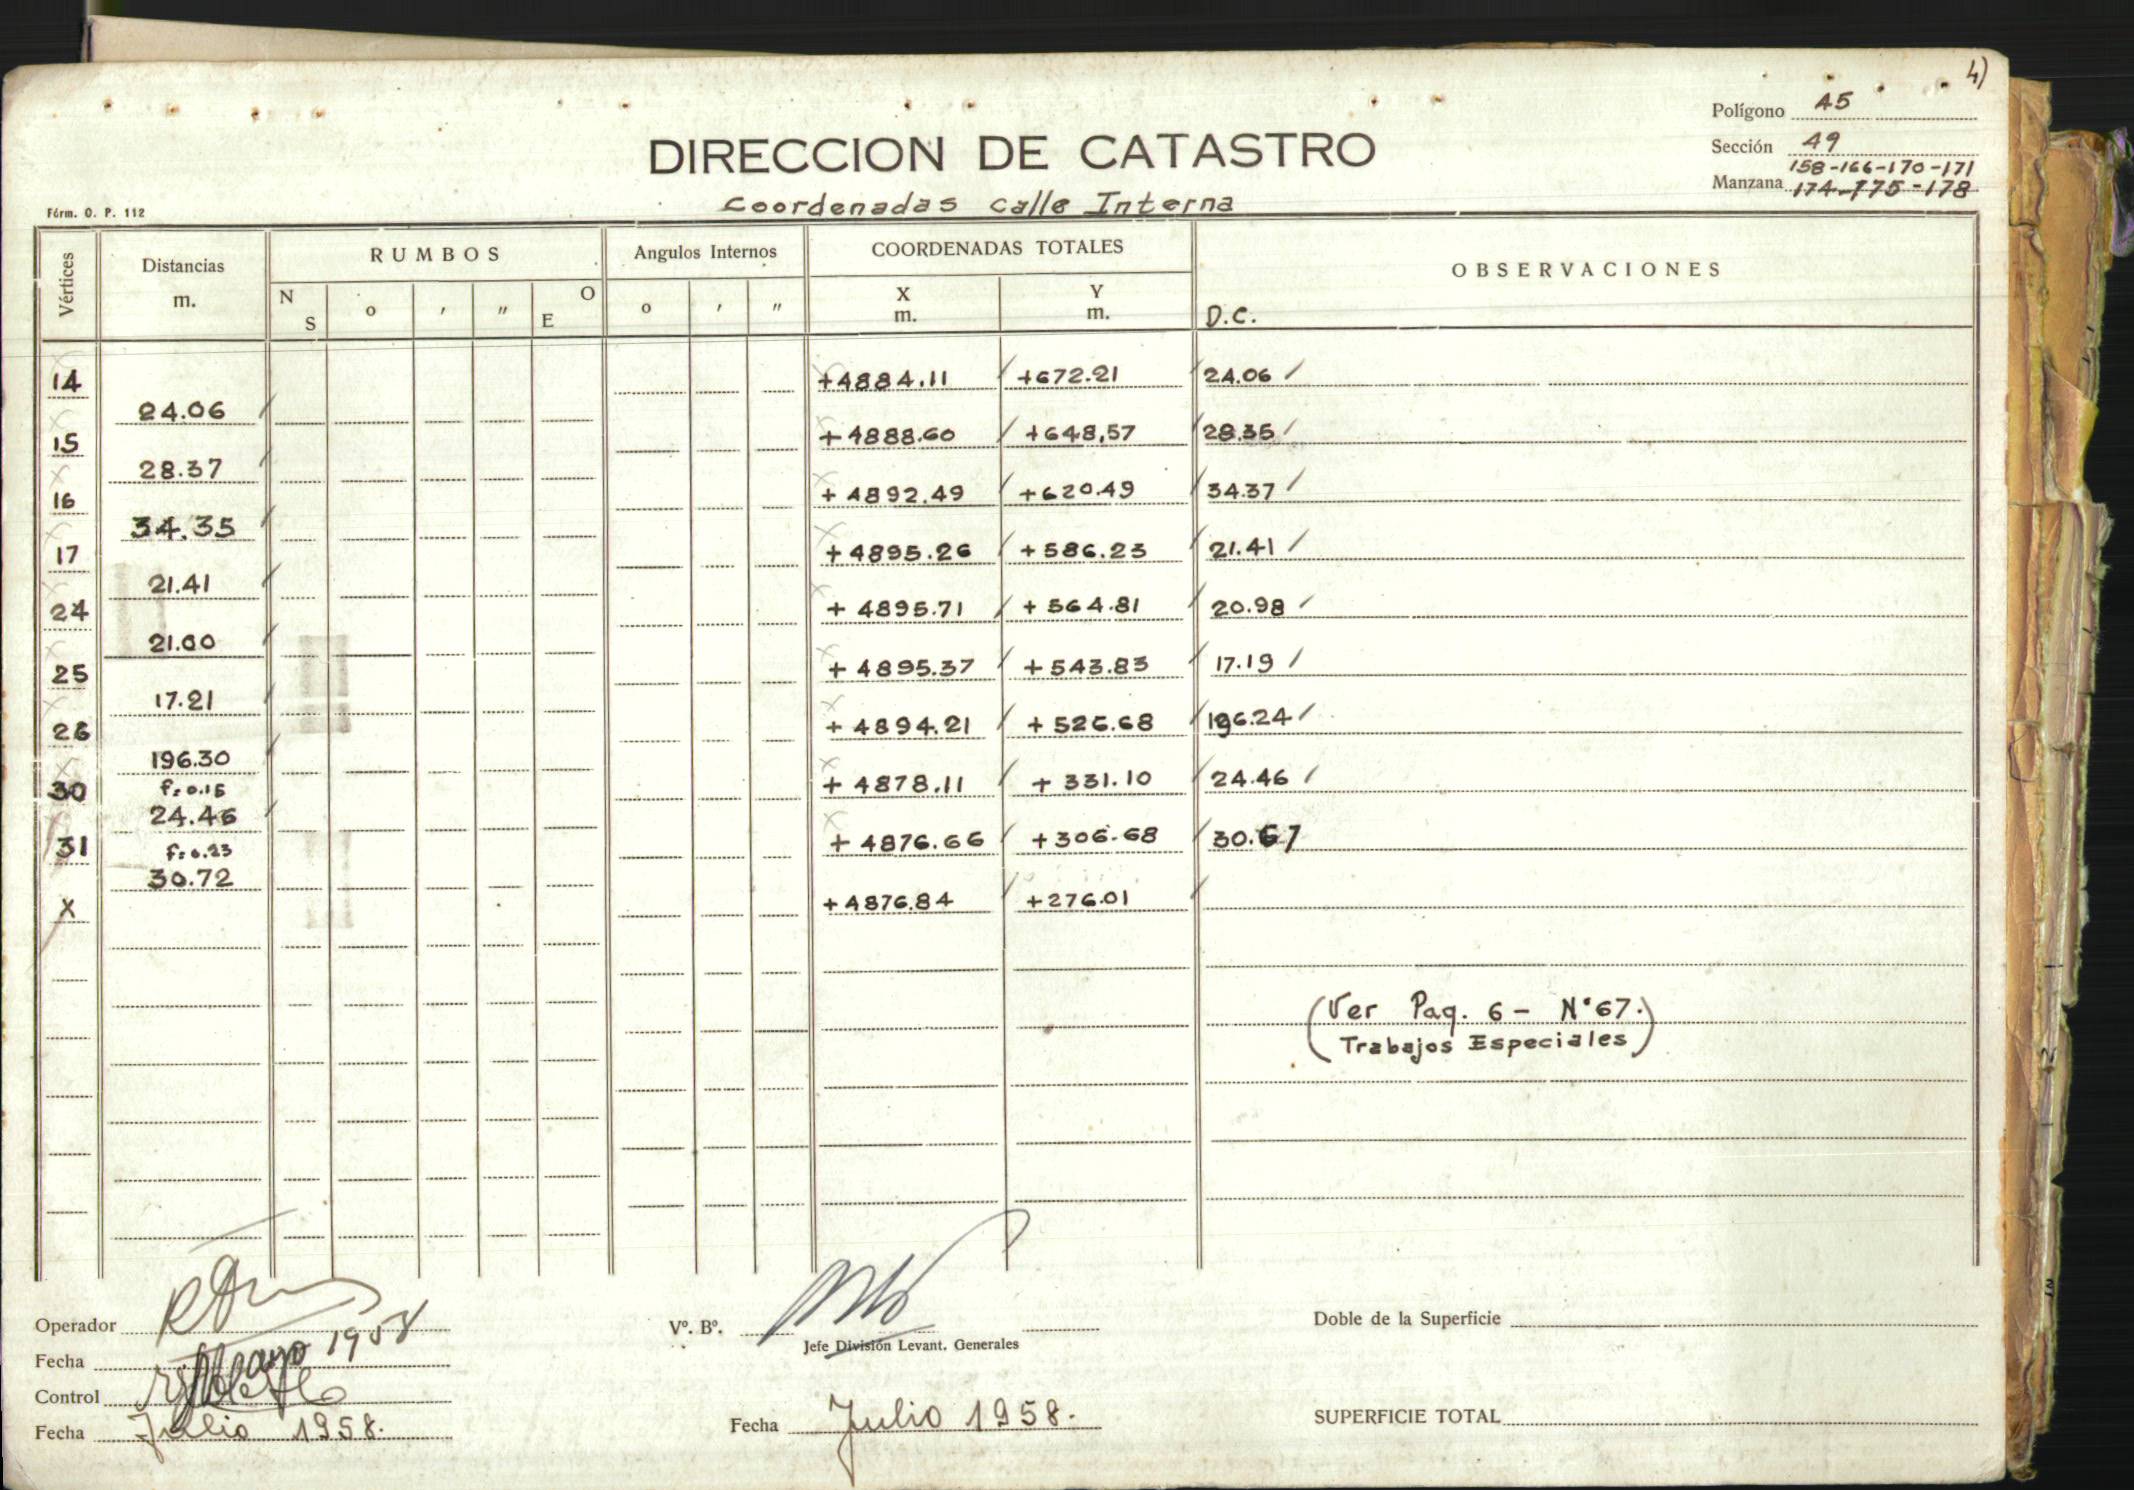 4)
Polígono 45
DIRECCION DE CATASTRO
Sección 49
158-166-170-171
Manzana 174-175-178
Coordenadas calle Interna
Fórm. O. P. 112
Vértices Distancias m. RUMBOS Angulos Internos COORDENADAS TOTALES OBSERVACIONES
N S o ' " O E o ' " X m. Y m. D.C.
14 +4884.11 +672.21 24.06
24.06
15 +4888.60 +648,57 28.35
28.37
16 +4892.49 +620.49 34.37
34.35
17 +4895.26 +586.23 21.41
21.41
24 +4895.71 +564.81 20.98
21.00
25 +4895.37 +543.83 17.19
17.21
26 +4894.21 +526.68 196.24
196.30
30 f=0.15 +4878.11 +331.10 24.46
24.46
31 f=0.23 +4876.66 +306.68 30.67
30.72
X +4876.84 +276.01
(Ver Pag. 6 - N°67.)
(Trabajos Especiales)
Operador
Vº. Bº.
Jefe División Levant. Generales
Doble de la Superficie
Fecha Mayo 1958
Control
Fecha Julio 1958.
Fecha Julio 1958.
SUPERFICIE TOTAL